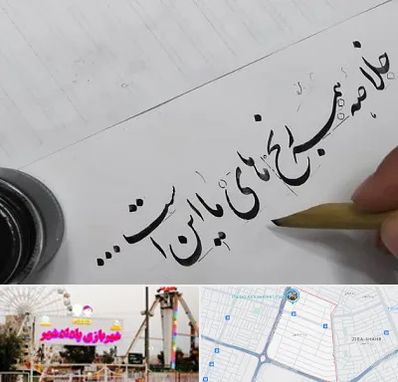 خلاصه همه رنج های ما این است...
شهربازی پادادشهر
ZIBA-SHAHR